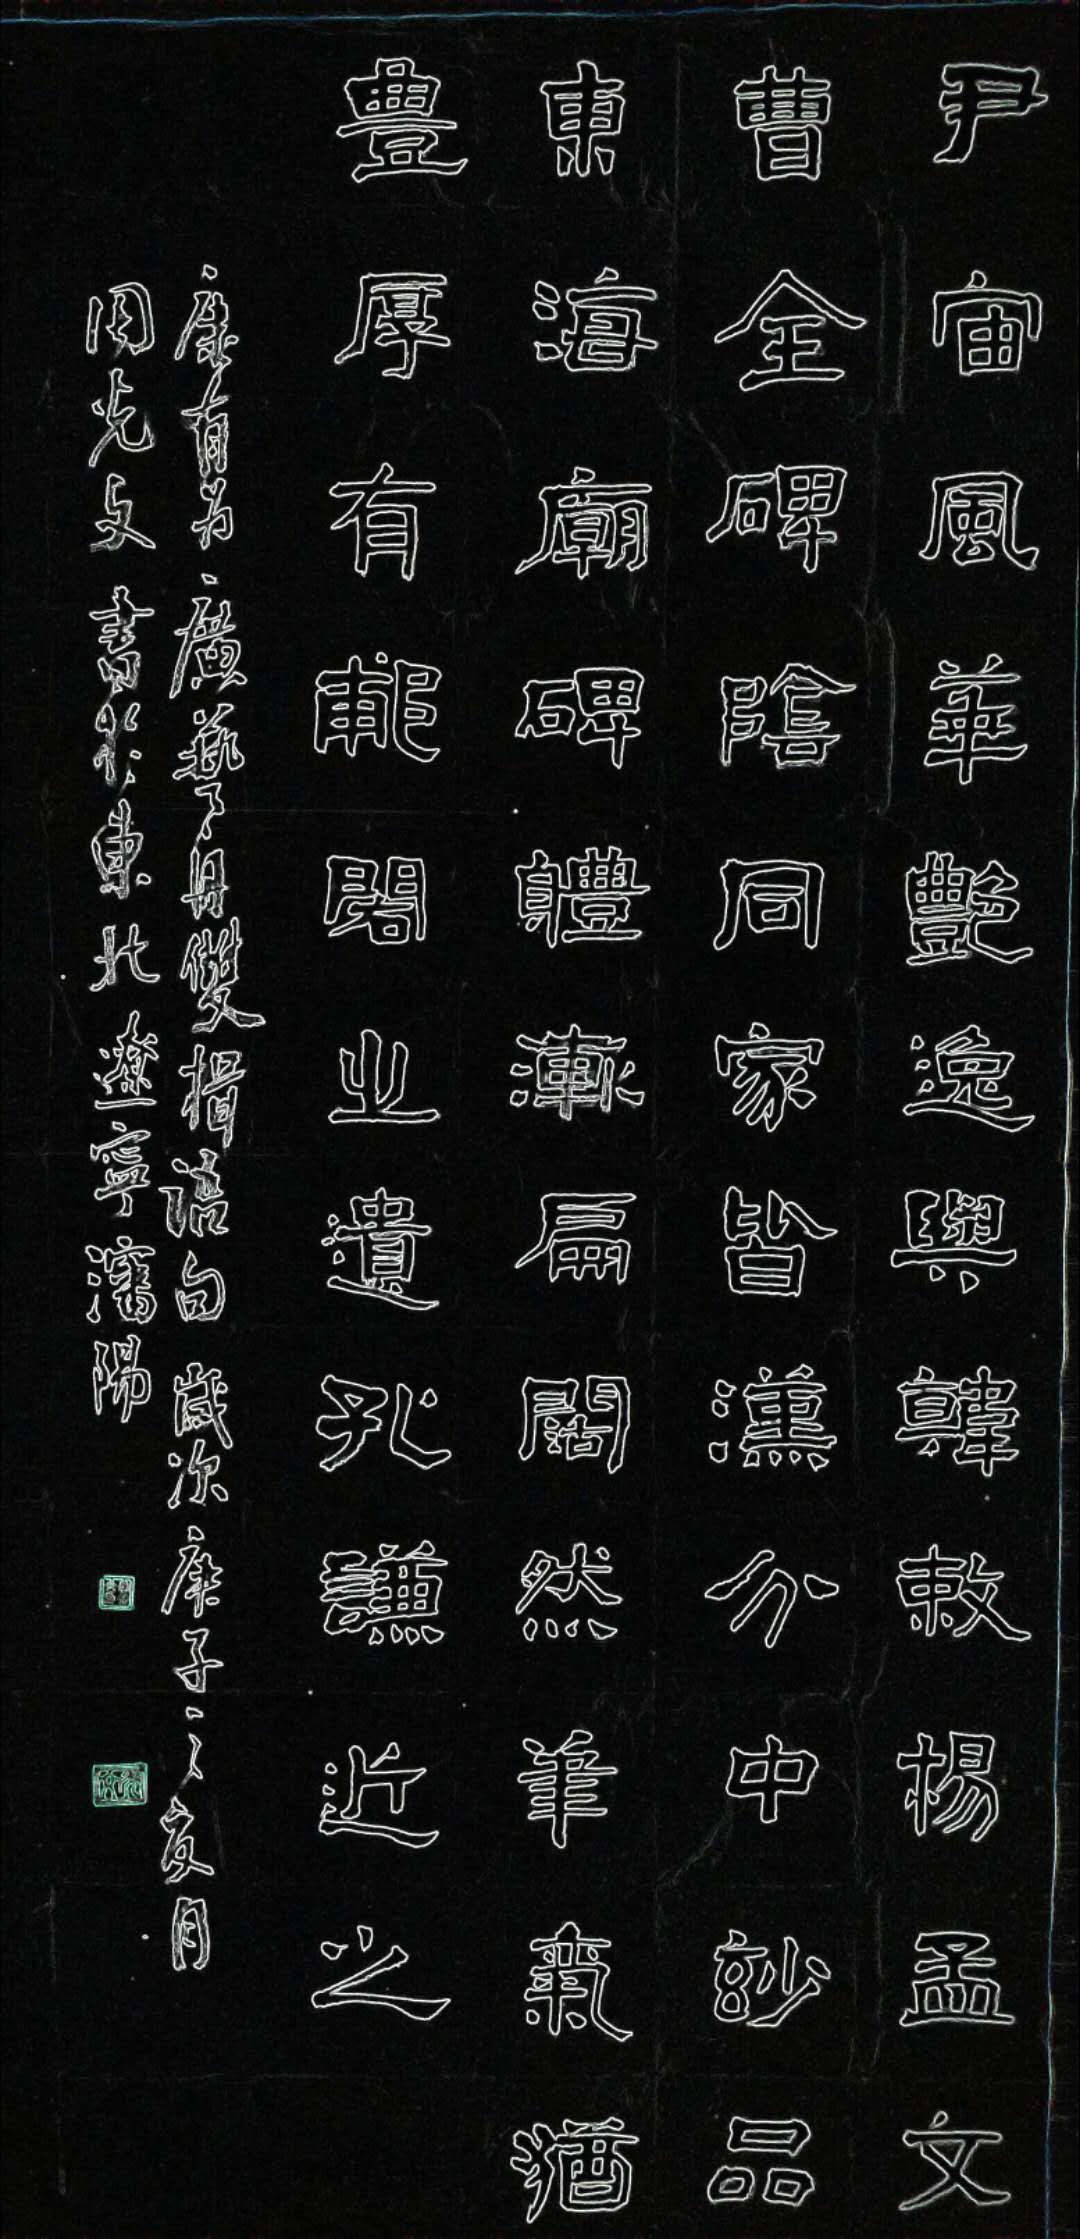 尹宙風華艷逸與韓敕楊孟文
曹全碑陰同家皆漢分中妙品
東海廟碑體漸扁闊然筆氣猶
豊厚有郙閣之遺孔謙近之
康有為廣藝舟雙楫語句歲次庚子夏月
周光文書於東北遼寧瀋陽